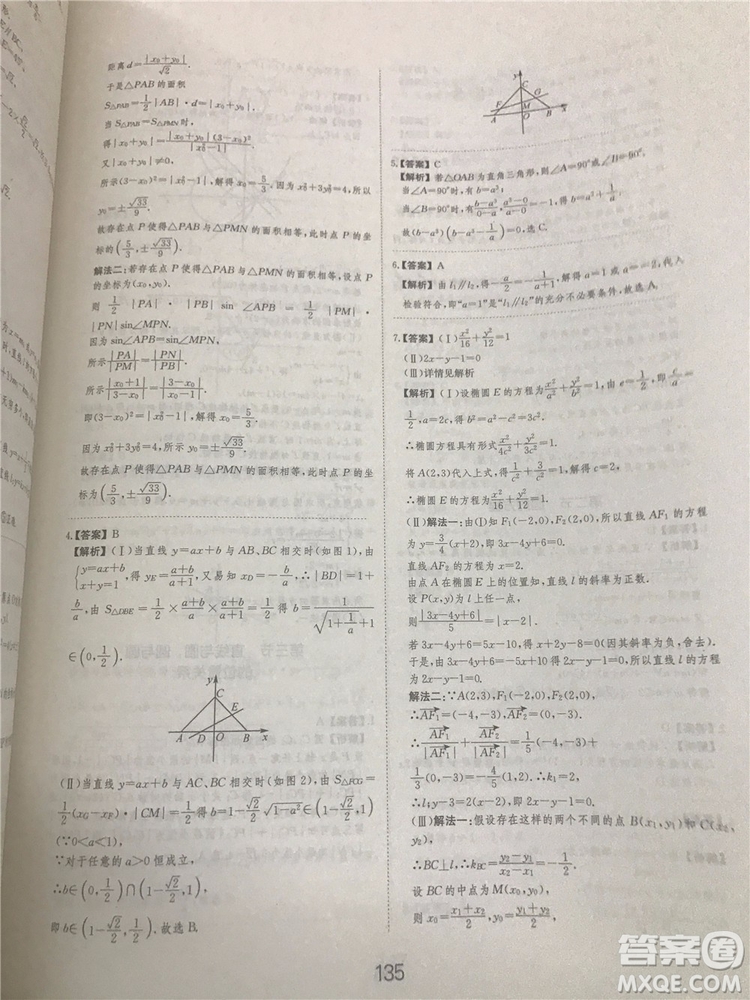 距离d=|x₀+y₀|/√2.
于是△PAB的面积
S△PAB=1/2|AB|·d=|x₀+y₀|.
当S△PAB=S△PMN时,
得|x₀+y₀|=|x₀+y₀|(3-x₀)²/|x₀²-1|.
又|x₀+y₀|≠0,
所示(3-x₀)²=|x₀²-1|,解得x₀=5/3. 因为x₀²+3y₀²=4,所以
y₀=±√33/9.
故存在点P使得△PAB与△PMN的面积相等,此时点P的
坐标为(5/3,±√33/9).
解法二:若存在点P使得△PAB与△PMN的面积相等,设点P
的坐标为(x₀,y₀).
则 1/2|PA|·|PB|sin∠APB=1/2|PM|·
|PN|sin∠MPN.
因为sin∠APB=sin∠MPN,
所示|PA|/|PM|=|PN|/|PB|.
所示|x₀+1|/|3-x₀|=|3-x₀|/|x₀-1|.
即(3-x₀)²=|x₀²-1|,解得x₀=5/3.
因为x₀²+3y₀²=4,所以y₀=±√33/9.
故存在点P使得△PAB与△PMN的面积相等,此时点P的坐标
为(5/3,±√33/9).
4.【答案】B
【解析】(Ⅰ)当直线y=ax+b与AB、BC相交时(如图1),由
{y=ax+b x+y=1,得yE=(a+b)/(a+1),又易知xD=-b/a,∴|BD|=1+
b/a,由S△DBE=1/2×(a+b)/a×(a+b)/(a+1)=1/2得b=1/(√(1+1/a)+1)
∈(0,1/2).
y
C
E
A D O B x
(Ⅱ)当直线y=ax+b与AC、BC相交时(如图2),由S△FCG=
1/2(xG-xF)·|CM|=1/2得b=1-√2/2√(1-a²)∈(1-√2/2,1)
(∵0<a<1),
∵对于任意的a>0恒成立,
∴b∈(0,1/2)∩(1-√2/2,1),
即b∈(1-√2/2,1/2).故选B.
y
C
F G
M
A O B x
5.【答案】C
【解析】若△OAB为直角三角形,则∠A=90°或∠B=90°.
当∠A=90°时,有b=a³;
当∠B=90°时,有(b-a³)/(0-a)·(a³-0)/(a-0)=-1,得b=a³+1/a.
故(b-a³)(b-a³-1/a)=0,选C.
6.【答案】A
【解析】由l₁∥l₂,得-a/2=-1/(a+1),解得a=1或a=-2,代入
检验符合,即“a=1”是“l₁∥l₂”的充分不必要条件,故选A.
7.【答案】(Ⅰ)x²/16+y²/12=1
(Ⅱ)2x-y-1=0
(Ⅲ)详情见解析
【解析】(Ⅰ)设椭圆E的方程为x²/a²+y²/b²=1,由e=1/2,即c/a=
1/2,a=2c,得b²=a²-c²=3c².
∴椭圆方程具有形式x²/4c²+y²/3c²=1.
将A(2,3)代入上式,得1/c²+3/c²=1,解得c=2,
∴椭圆E的方程为x²/16+y²/12=1.
(Ⅱ)解法一:由(Ⅰ)知F₁(-2,0),F₂(2,0),所以直线AF₁的方
程为:y=3/4(x+2),即3x-4y+6=0,
直线AF₂的方程为:x=2.
由点A在椭圆E上的位置知,直线l的斜率为正数.
设P(x,y)为l上任一点,
则|3x-4y+6|/5=|x-2|.
若3x-4y+6=5x-10,得x+2y-8=0(因其斜率为负,舍去).
于是,由3x-4y+6=-5x+10,得2x-y-1=0,所以直线l的方程
为:2x-y-1=0.
解法二:∵A(2,3),F₁(-2,0),F₂(2,0),
∴AF₁=(-4,-3),AF₂=(0,-3).
∴AF₁/|AF₁|+AF₂/|AF₂|=1/5(-4,-3)+
1/3(0,-3)=-4/5(1,2).∴k₁=2,
∴l:y-3=2(x-2),即2x-y-1=0.
(Ⅲ)解法一:假设存在这样的两个不同的点B(x₁,y₁)和C(x₂,
y₂),
∴BC⊥l,∴kBC=(y₂-y₁)/(x₂-x₁)=-1/2.
设BC的中点为M(x₀,y₀),
则x₀=(x₁+x₂)/2,y₀=(y₁+y₂)/2,
135
答案圈
MXQE.COM